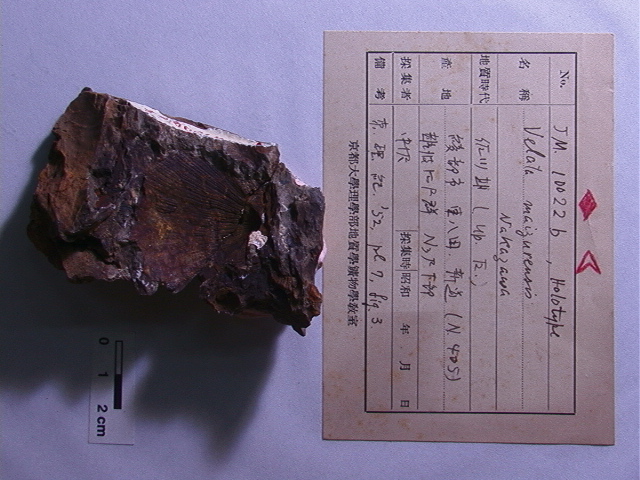 No. JM. 10022 b, Holotype
名稱 Velata maizurensis
Nakazawa
地質時代 (Up. Tr.)
產地 (N 405)
採集者 中沢 採集時昭和 年 月 日
備考 京. 理. 紀. '52, pl. 7, fig. 3
京都大學理學部地質學鑛物學教室
0 1 2 cm